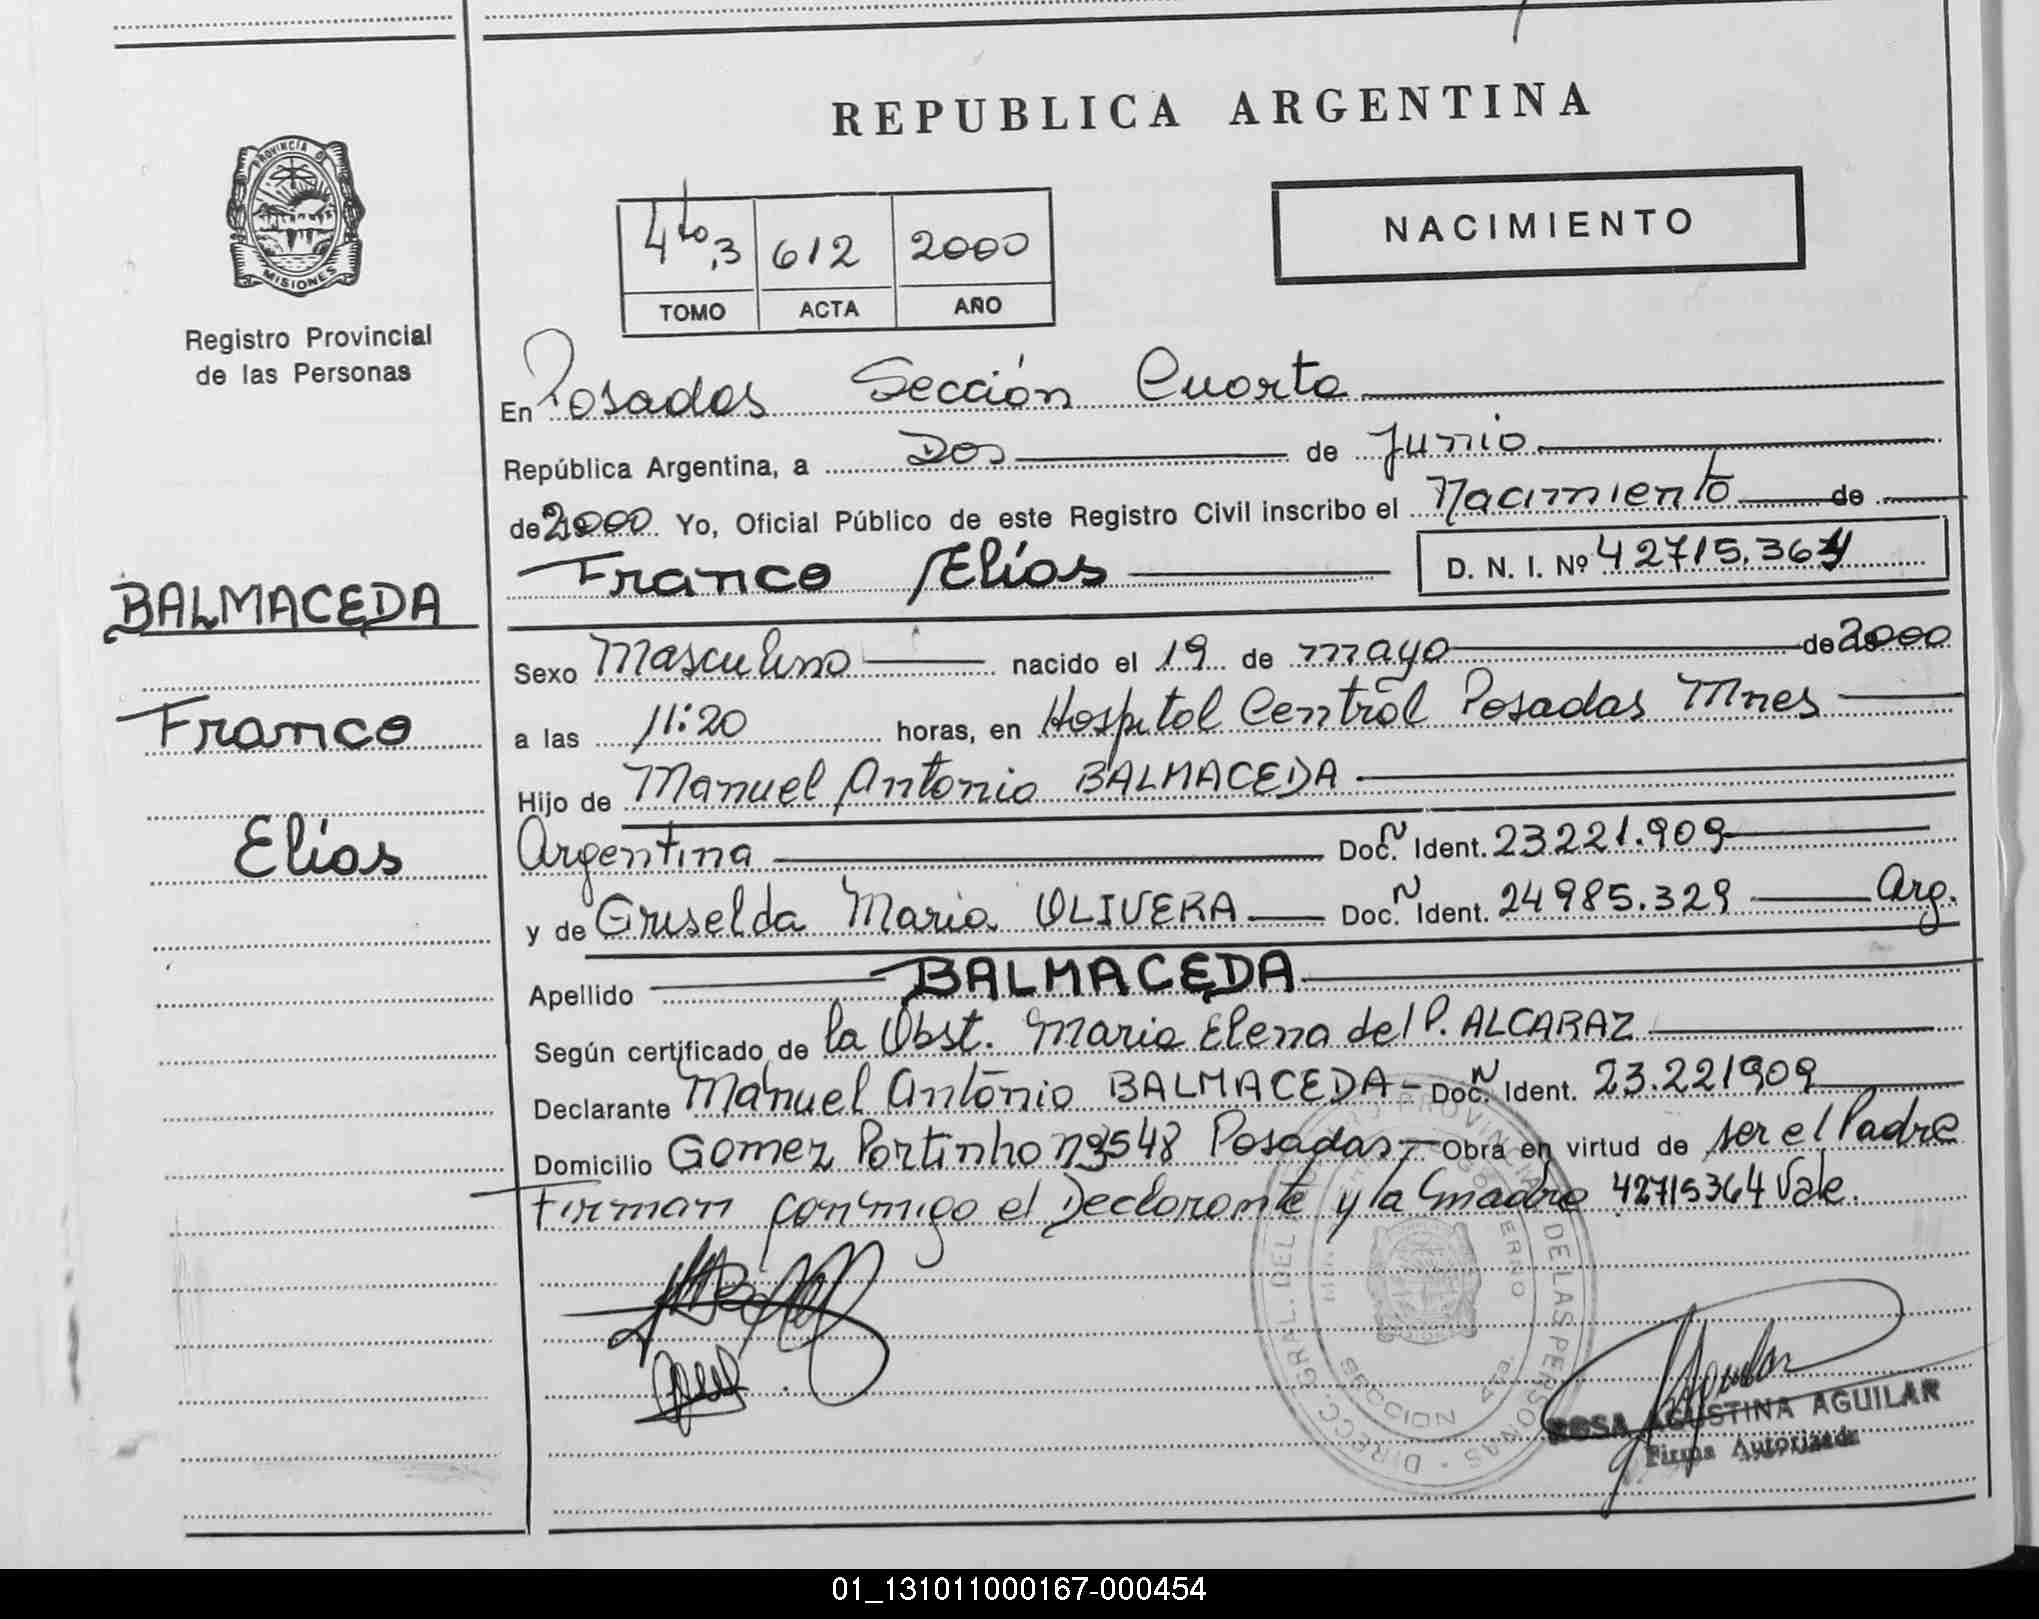 REPUBLICA ARGENTINA
PROVINCIA DE
MISIONES
Registro Provincial
de las Personas
NACIMIENTO
4to,3 612 2000
TOMO ACTA AÑO
En Posadas Sección Cuarta
República Argentina, a Dos de Junio
de 2000 Yo, Oficial Público de este Registro Civil inscribo el Nacimiento de
Franco Elías D. N. I. Nº 42715.364
BALMACEDA
Franco
Elías
Sexo Masculino nacido el 19 de mayo de 2000
a las 11:20 horas, en Hospital Central Posadas Mnes
Hijo de Manuel Antonio BALMACEDA
Argentina Doc. N Ident. 23.221.909
y de Griselda Maria OLIVERA Doc. N Ident. 24985.329 Arg.
Apellido BALMACEDA
Según certificado de la Obst. Maria Elena del P. ALCARAZ
Declarante Manuel Antonio BALMACEDA - Doc. N Ident. 23.221909
Domicilio Gomez Portinho Nº3548 Posadas - Obra en virtud de ser el Padre
Firman conmigo el Declarante y la madre 42715364 Vale.
DIRECC. GRAL. DEL PROVINCIAL DE LAS PERSONAS
SECCION 4ta.
ROSA AGUSTINA AGUILAR
Firma Autorizada
01_131011000167-000454